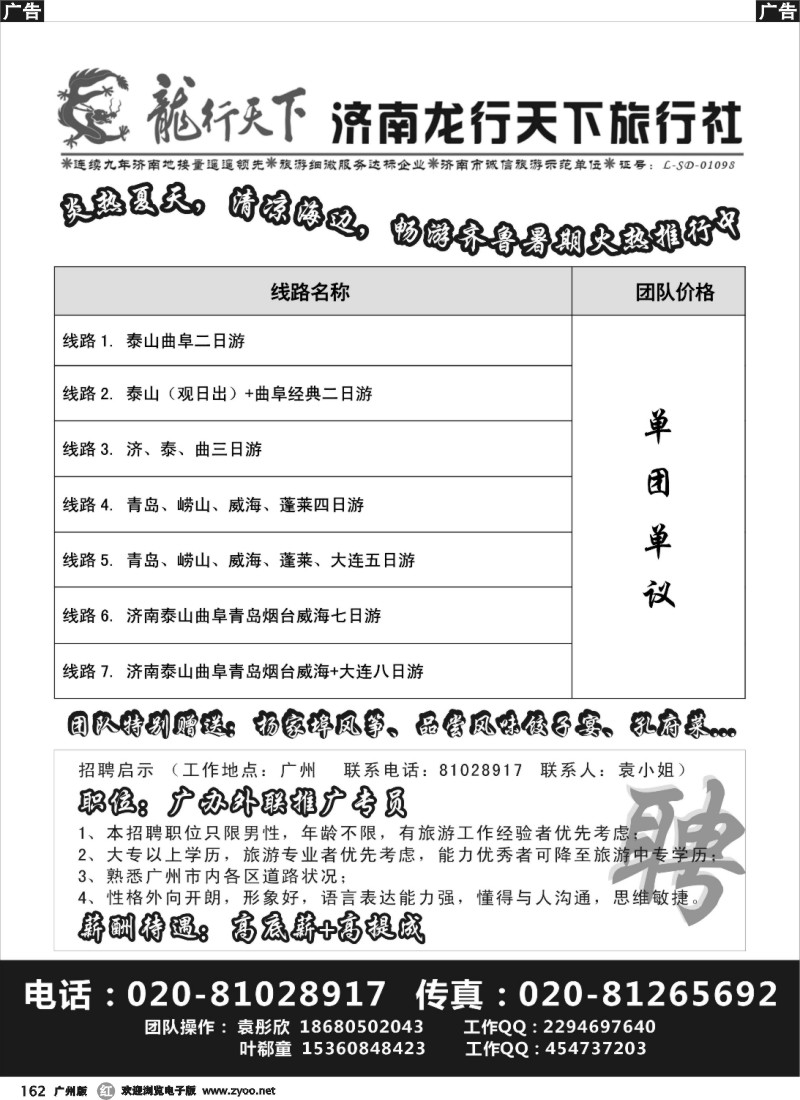 广告
广告
龍行天下 济南龙行天下旅行社
※连续九年济南地接量遥遥领先※旅游细微服务达标企业※济南市诚信旅游示范单位※证号：L-SD-01098
炎热夏天，清凉海边，畅游齐鲁暑期火热推行中
线路名称 团队价格
线路 1. 泰山曲阜二日游
线路 2. 泰山（观日出）+曲阜经典二日游
线路 3. 济、泰、曲三日游
线路 4. 青岛、崂山、威海、蓬莱四日游
线路 5. 青岛、崂山、威海、蓬莱、大连五日游
线路 6. 济南泰山曲阜青岛烟台威海七日游
线路 7. 济南泰山曲阜青岛烟台威海+大连八日游
单团单议
团队特别赠送：杨家埠风筝、品尝风味饺子宴、孔府菜...
招聘启示 （工作地点：广州 联系电话：81028917 联系人：袁小姐）
职位：广办外联推广专员
1、本招聘职位只限男性，年龄不限，有旅游工作经验者优先考虑；
2、大专以上学历，旅游专业者优先考虑，能力优秀者可降至旅游中专学历；
3、熟悉广州市内各区道路状况；
4、性格外向开朗，形象好，语言表达能力强，懂得与人沟通，思维敏捷。
薪酬待遇：高底薪+高提成
聘
电话：020-81028917 传真：020-81265692
团队操作：袁彤欣 18680502043 工作QQ：2294697640
叶郗童 15360848423 工作QQ：454737203
162 广州版 红 欢迎浏览电子版 www.zyoo.net